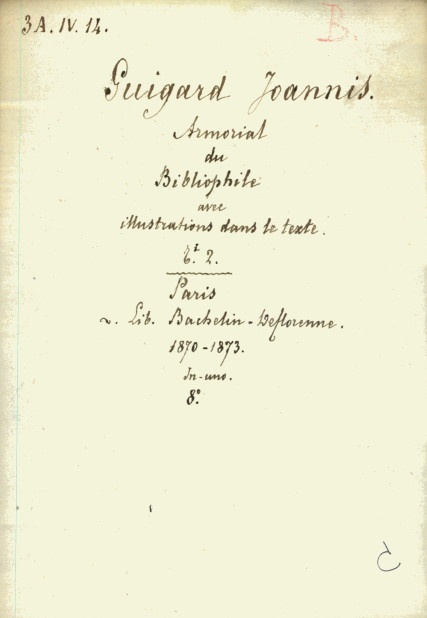 3A. IV. 14.
B.
Guigard Joannis.
Armorial
du
Bibliophile
avec
illustrations dans le texte.
2.
Paris
Lib. Bachelin-Deflorenne.
1870-1873.
In-uno.
8°